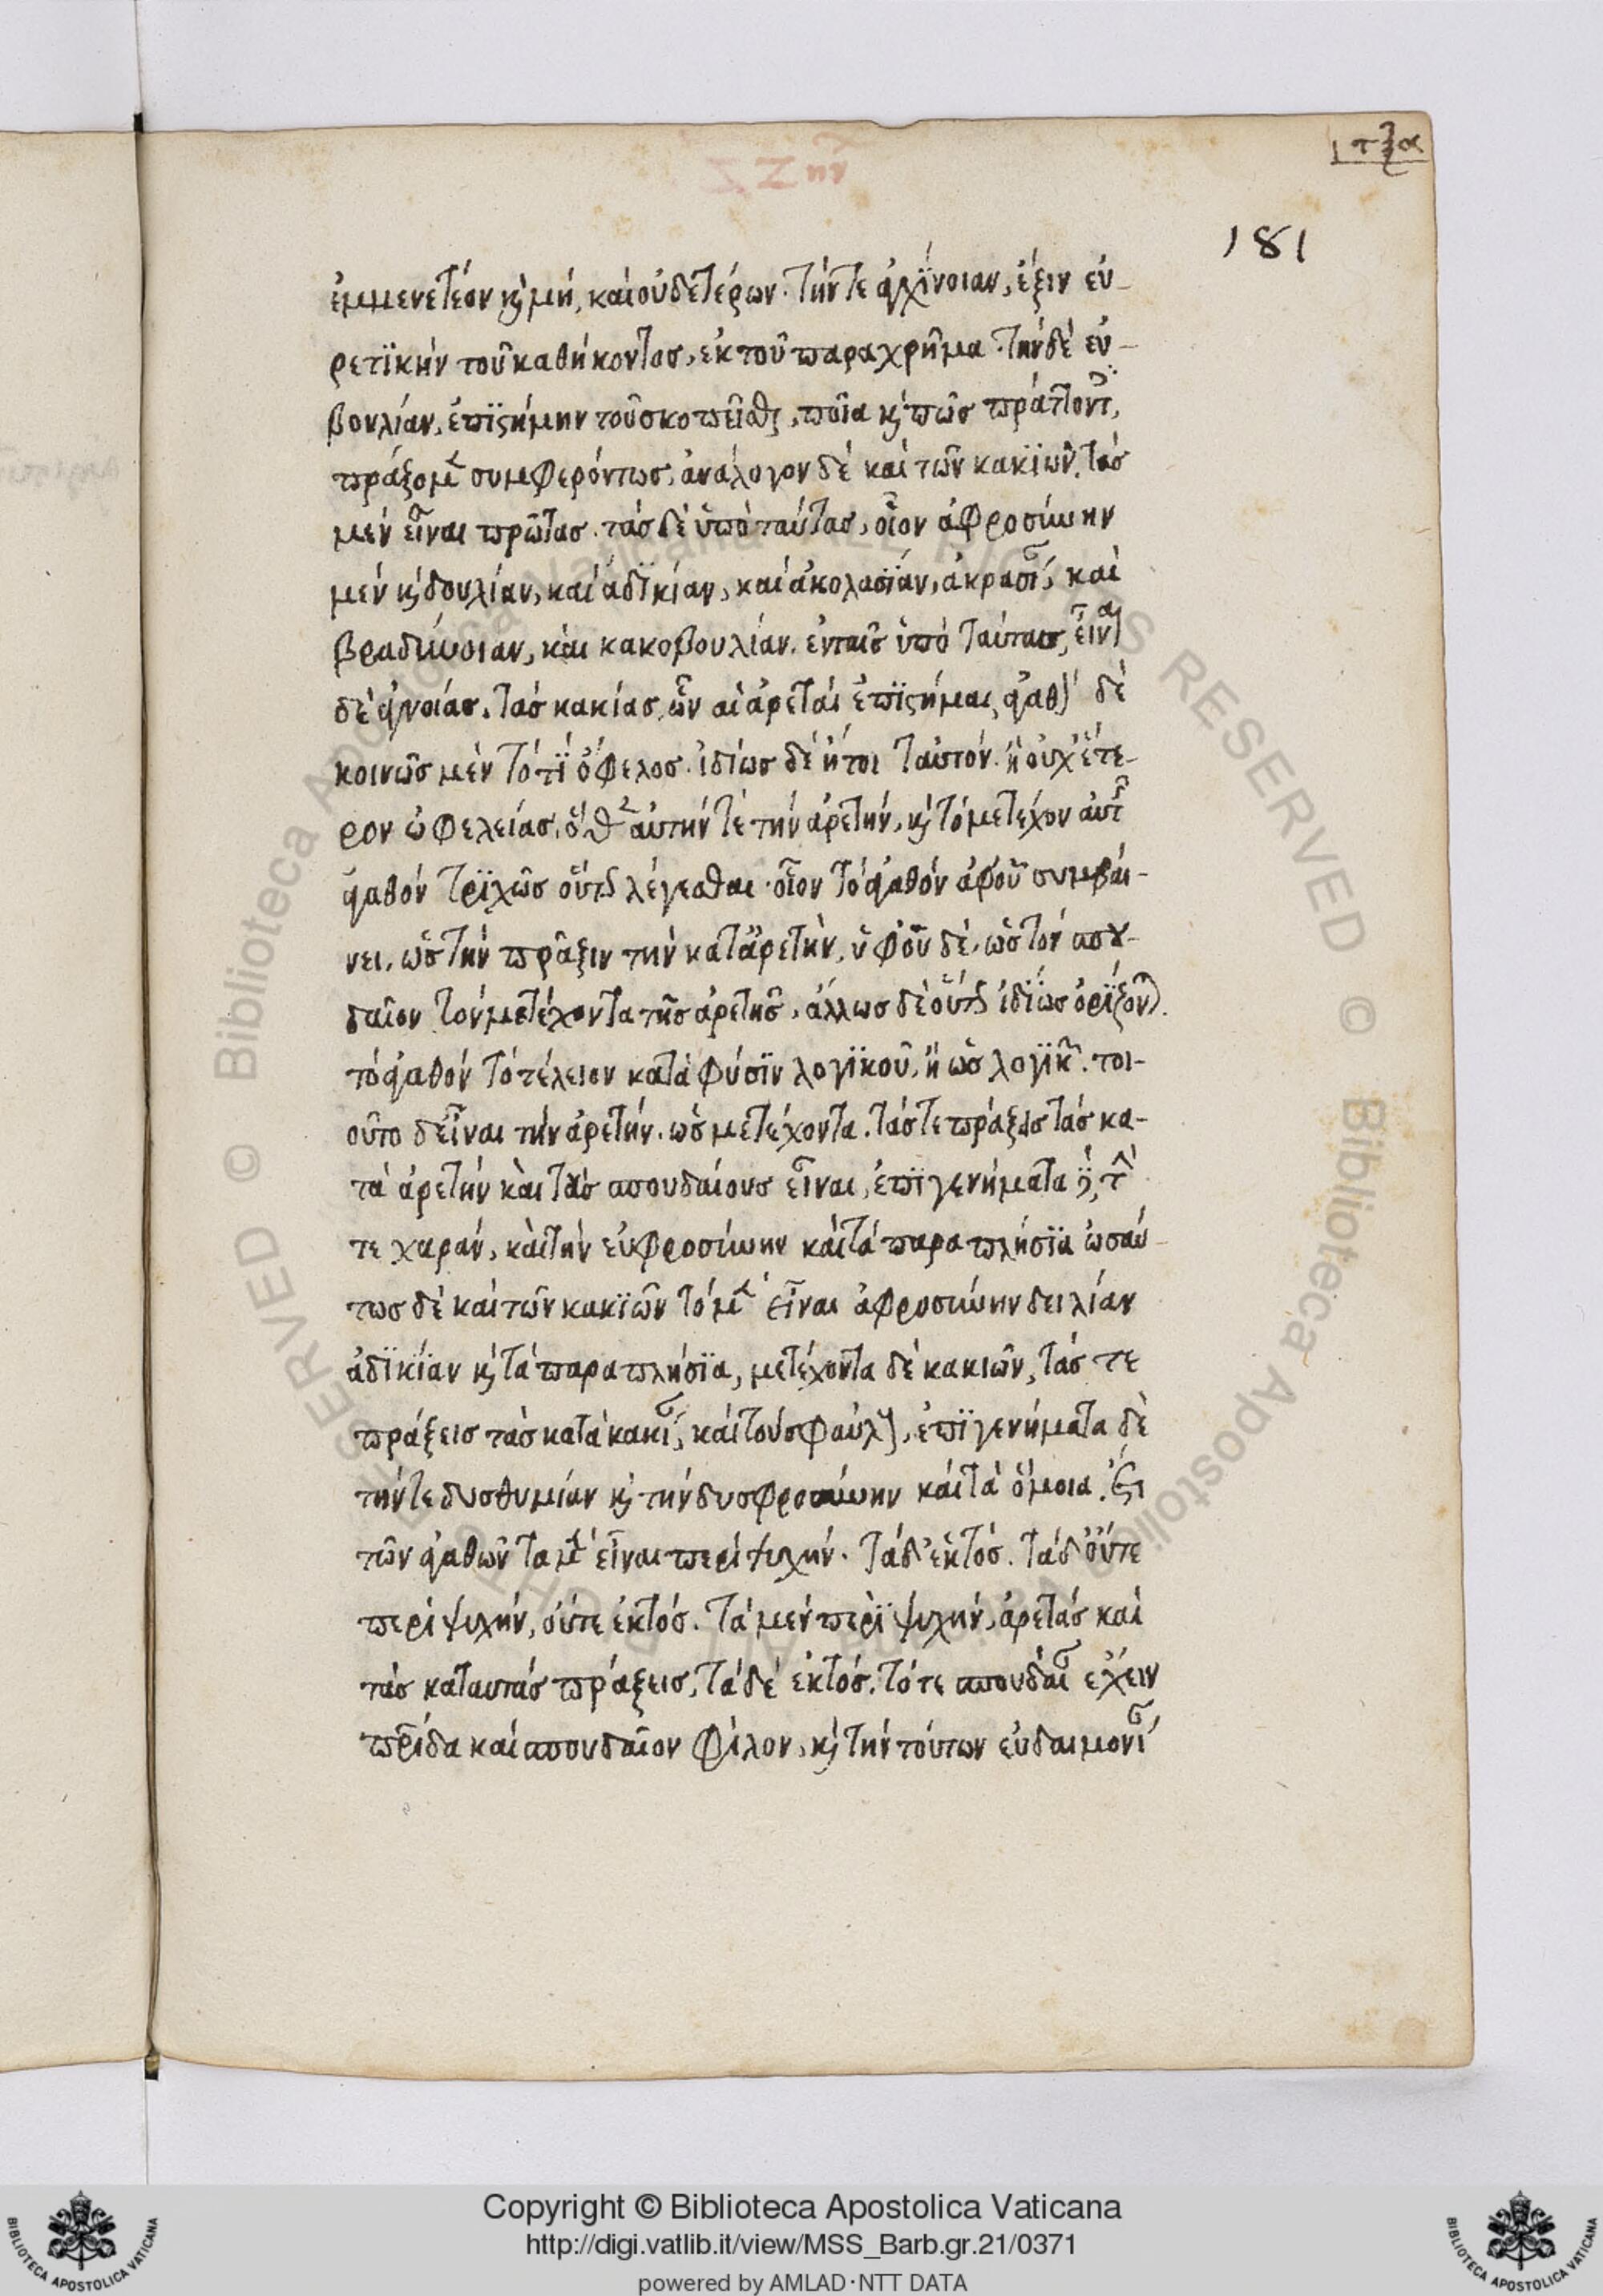 τξα
181
ἐμμενετέον κὶ μή, καὶ οὐδετέρων. τήν τε ἀγχίνοιαν, ἕξιν εὑ-
ρετϊκὴν τοῦ καθήκοντος, ἐκ τοῦ παραχρῆμα. τὴν δὲ εὐ-
βουλίαν, ἐπϊστήμην τοῦ σκοπεῖσθαι, ποῖα κὶ πῶς πράττοντ
πράξομ συμφερόντως, ἀνάλογον δὲ καὶ τῶν κακϊῶν, τὰς
μὲν εἶναι πρώτας. τὰς δὲ ὑπὸ ταύτας, οἷον ἀφροσύνην
μὲν κὶ δουλίαν, καὶ ἀδϊκίαν, καὶ ἀκολασίαν, ἀκρασί, καὶ
βραδύνοιαν, καὶ κακοβουλίαν. ἐν ταῖς ὑπὸ ταύταις, εἶναι
δὲ ἀγνοίας, τὰς κακίας, ὧν αἱ ἀρεταὶ ἐπϊστήμαι, ἀγαθ δὲ
κοινῶς μὲν τό τϊ ὄφελος. ἰδίως δὲ ἤτοι ταὐτόν. ἢ οὐχ ἕτε-
ρον ὠφελείας, ὅθ αὐτήν τε τὴν ἀρετήν, κὶ τὸ μετέχον αὐτ
ἀγαθὸν τρϊχῶς οὕτω λέγεσθαι. οἷον τὸ ἀγαθὸν ἀφ' οὗ συμβαί-
νει, ὡς τὴν πρᾶξιν τὴν κατ' ἀρετήν, ὑφ' οὗ δὲ, ὡς τὸν σπου-
δαῖον τὸν μετέχοντα τῆς ἀρετῆς, ἄλλως δὲ οὕτω ἰδϊως ὁρϊζον
τὸ ἀγαθὸν τὸ τέλειον κατὰ φύσϊν λογϊκοῦ, ἢ ὡς λογϊκ. τοι-
οῦτο δ' εἶναι τὴν ἀρετήν. ὡς μετέχοντα. τάς τε πράξεις τὰς κα-
τὰ ἀρετὴν καὶ τοὺς σπουδαίους εἶναι, ἐπϊγενήματα δὲ, τ
τε χαράν, καὶ τὴν εὐφροσύνην καὶ τὰ παραπλήσϊα ὡσαύ-
τως δὲ καὶ τῶν κακϊῶν τὸ μ εἶναι ἀφροσύνην δειλίαν
ἀδϊκίαν κὶ τὰ παραπλήσϊα, μετέχοντα δὲ κακιῶν, τάς τε
πράξεις τὰς κατὰ κακί, καὶ τοὺς φαύλ, ἐπϊγενήματα δὲ
τήν τε δυσθυμίαν κὶ τὴν δυσφροσύνην καὶ τὰ ὅμοια. ἔτι
τῶν ἀγαθῶν τὰ μ εἶναι περὶ ψυχήν. τὰ δ' ἐκτός. τὰ δ' οὔτε
περὶ ψυχήν, οὔτε ἐκτός. τὰ μὲν περὶ ψυχήν, ἀρετὰς καὶ
τὰς κατ αυτὰς πράξεις, τὰ δὲ ἐκτός. τό τε σπουδαί ἔχειν
πρίδα καὶ σπουδαῖον φίλον, κὶ τὴν τούτων εὐδαιμονί
Copyright © Biblioteca Apostolica Vaticana
http://digi.vatlib.it/view/MSS_Barb.gr.21/0371
powered by AMLAD·NTT DATA